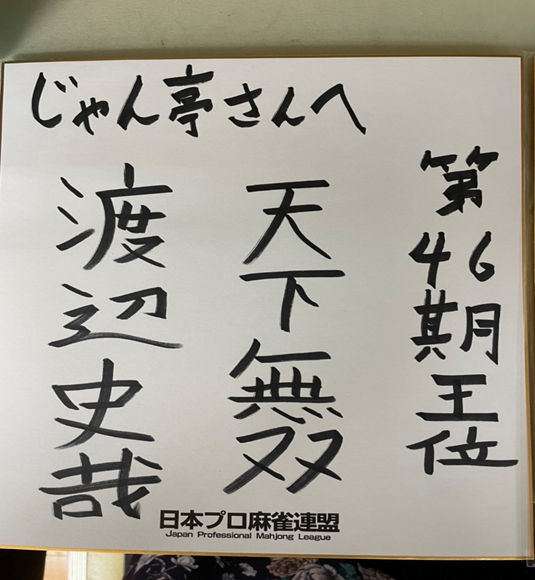 じゃん亭さんへ
第46期王位
天下無双
渡辺史哉
日本プロ麻雀連盟
Japan Professional Mahjong League